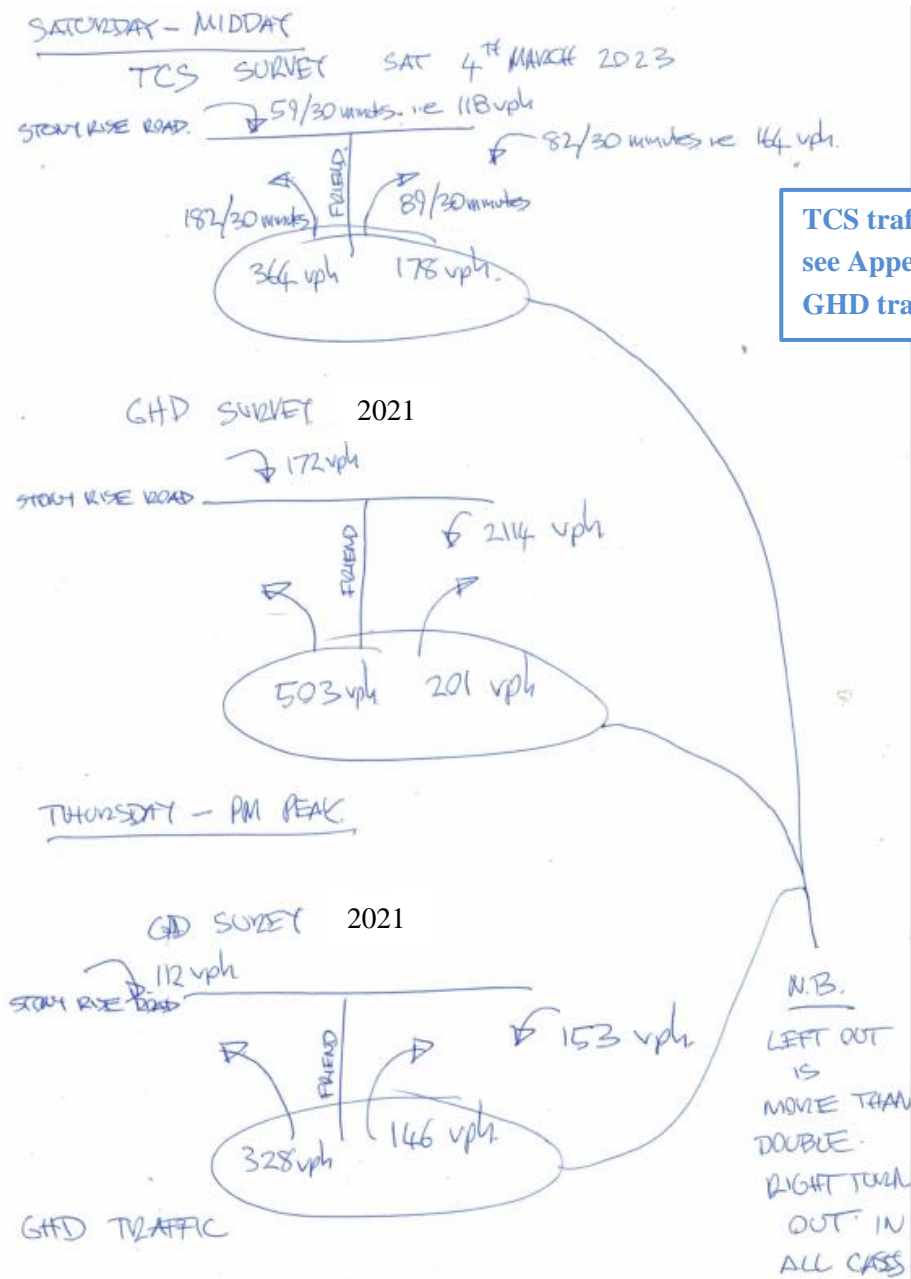 SATURDAY - MIDDAY
TCS SURVEY SAT 4TH MARCH 2023
59/30 minutes. ie 118 vph
STONY RISE ROAD.
82/30 minutes ie 164 vph.
FRIEND.
182/30 minutes
89/30 minutes
364 vph 178 vph.
TCS traf
see Appe
GHD tra
GHD SURVEY 2021
172 vph
STONY RISE ROAD
FRIEND
2114 vph
503 vph 201 vph
THURSDAY - PM PEAK.
SUREY 2021
112 vph
STONY RISE ROAD
FRIEND
153 vph
328 vph
146 vph
GHD TRAFFIC
N.B.
LEFT OUT
IS
MORE THAN
DOUBLE.
RIGHT TURN
OUT IN
ALL CASES